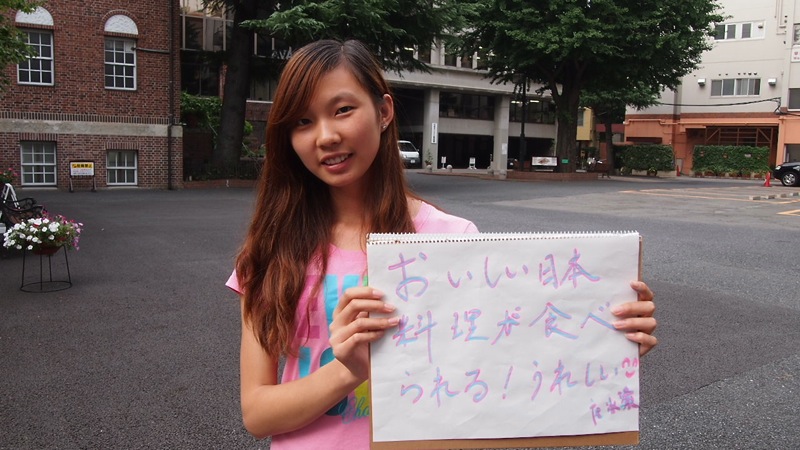 おいしい日本
料理が食べ
られる！うれしい